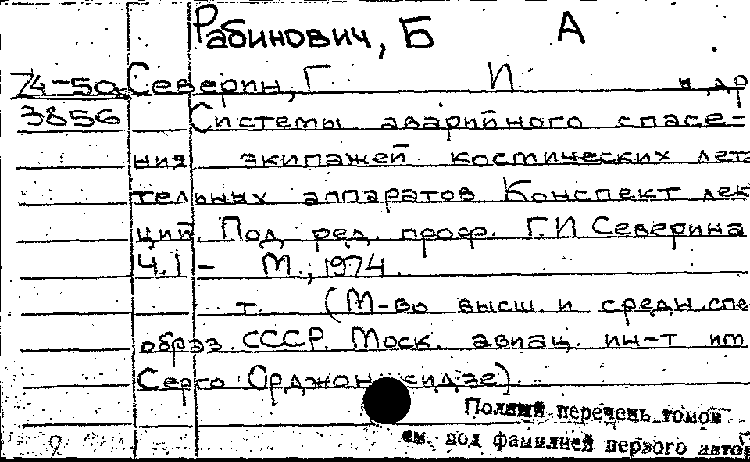 Рабинович, Б А
74-50 Северин, Г И и др
3856 Системы аварийного спасе-
ния экипажей космических лета
тельных аппаратов Конспект лек
ций. Под ред. проф. Г.И Северина
Ч.I - М., 1974.
т. (М-во высш. и средн. спе
образ. СССР. Моск. авиац. ин-т им
Серго Орджоникидзе).
Полный перечень томов
см. под фамилией первого авто